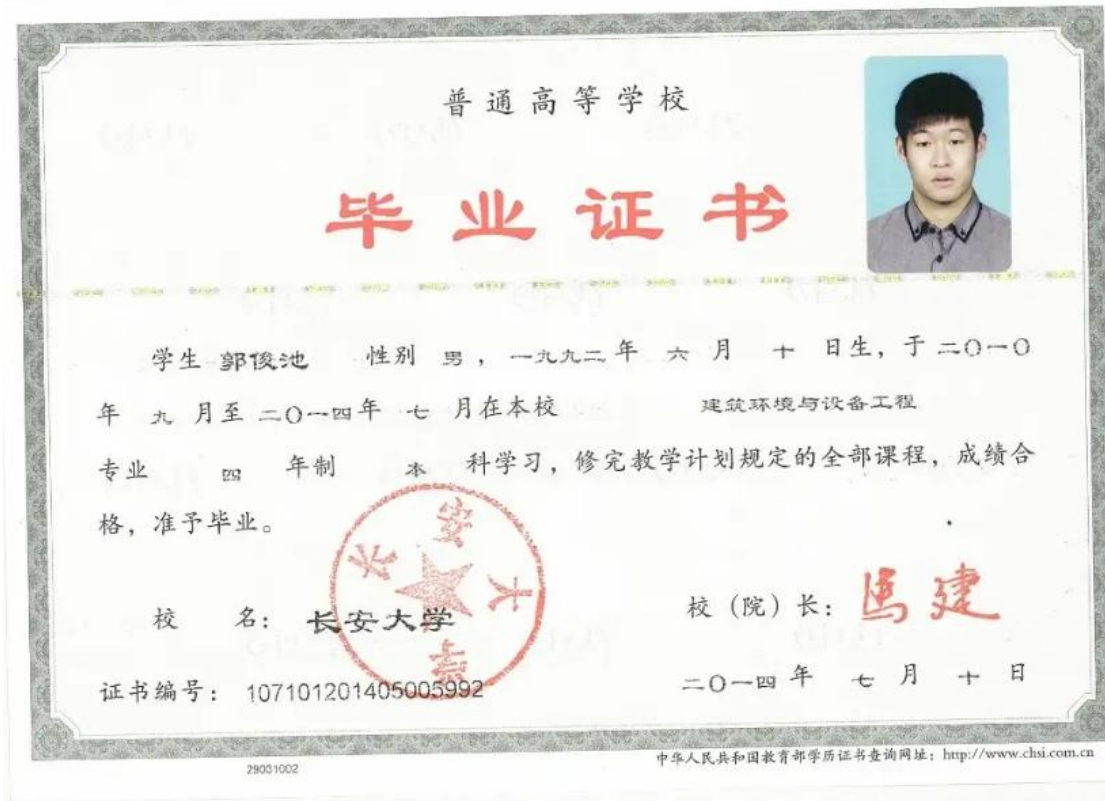 普通高等学校
毕业证书
学生 郭俊池 性别 男，一九九二年 六 月 十 日生，于二〇一〇
年 九 月至二〇一四年 七 月在本校 建筑环境与设备工程
专业 四 年制 本 科学习，修完教学计划规定的全部课程，成绩合
格，准予毕业。
长安大学
校 名：长安大学
校（院）长：馬建
证书编号：107101201405005992
二〇一四年 七 月 十 日
29031002
中华人民共和国教育部学历证书查询网址：http://www.chsi.com.cn